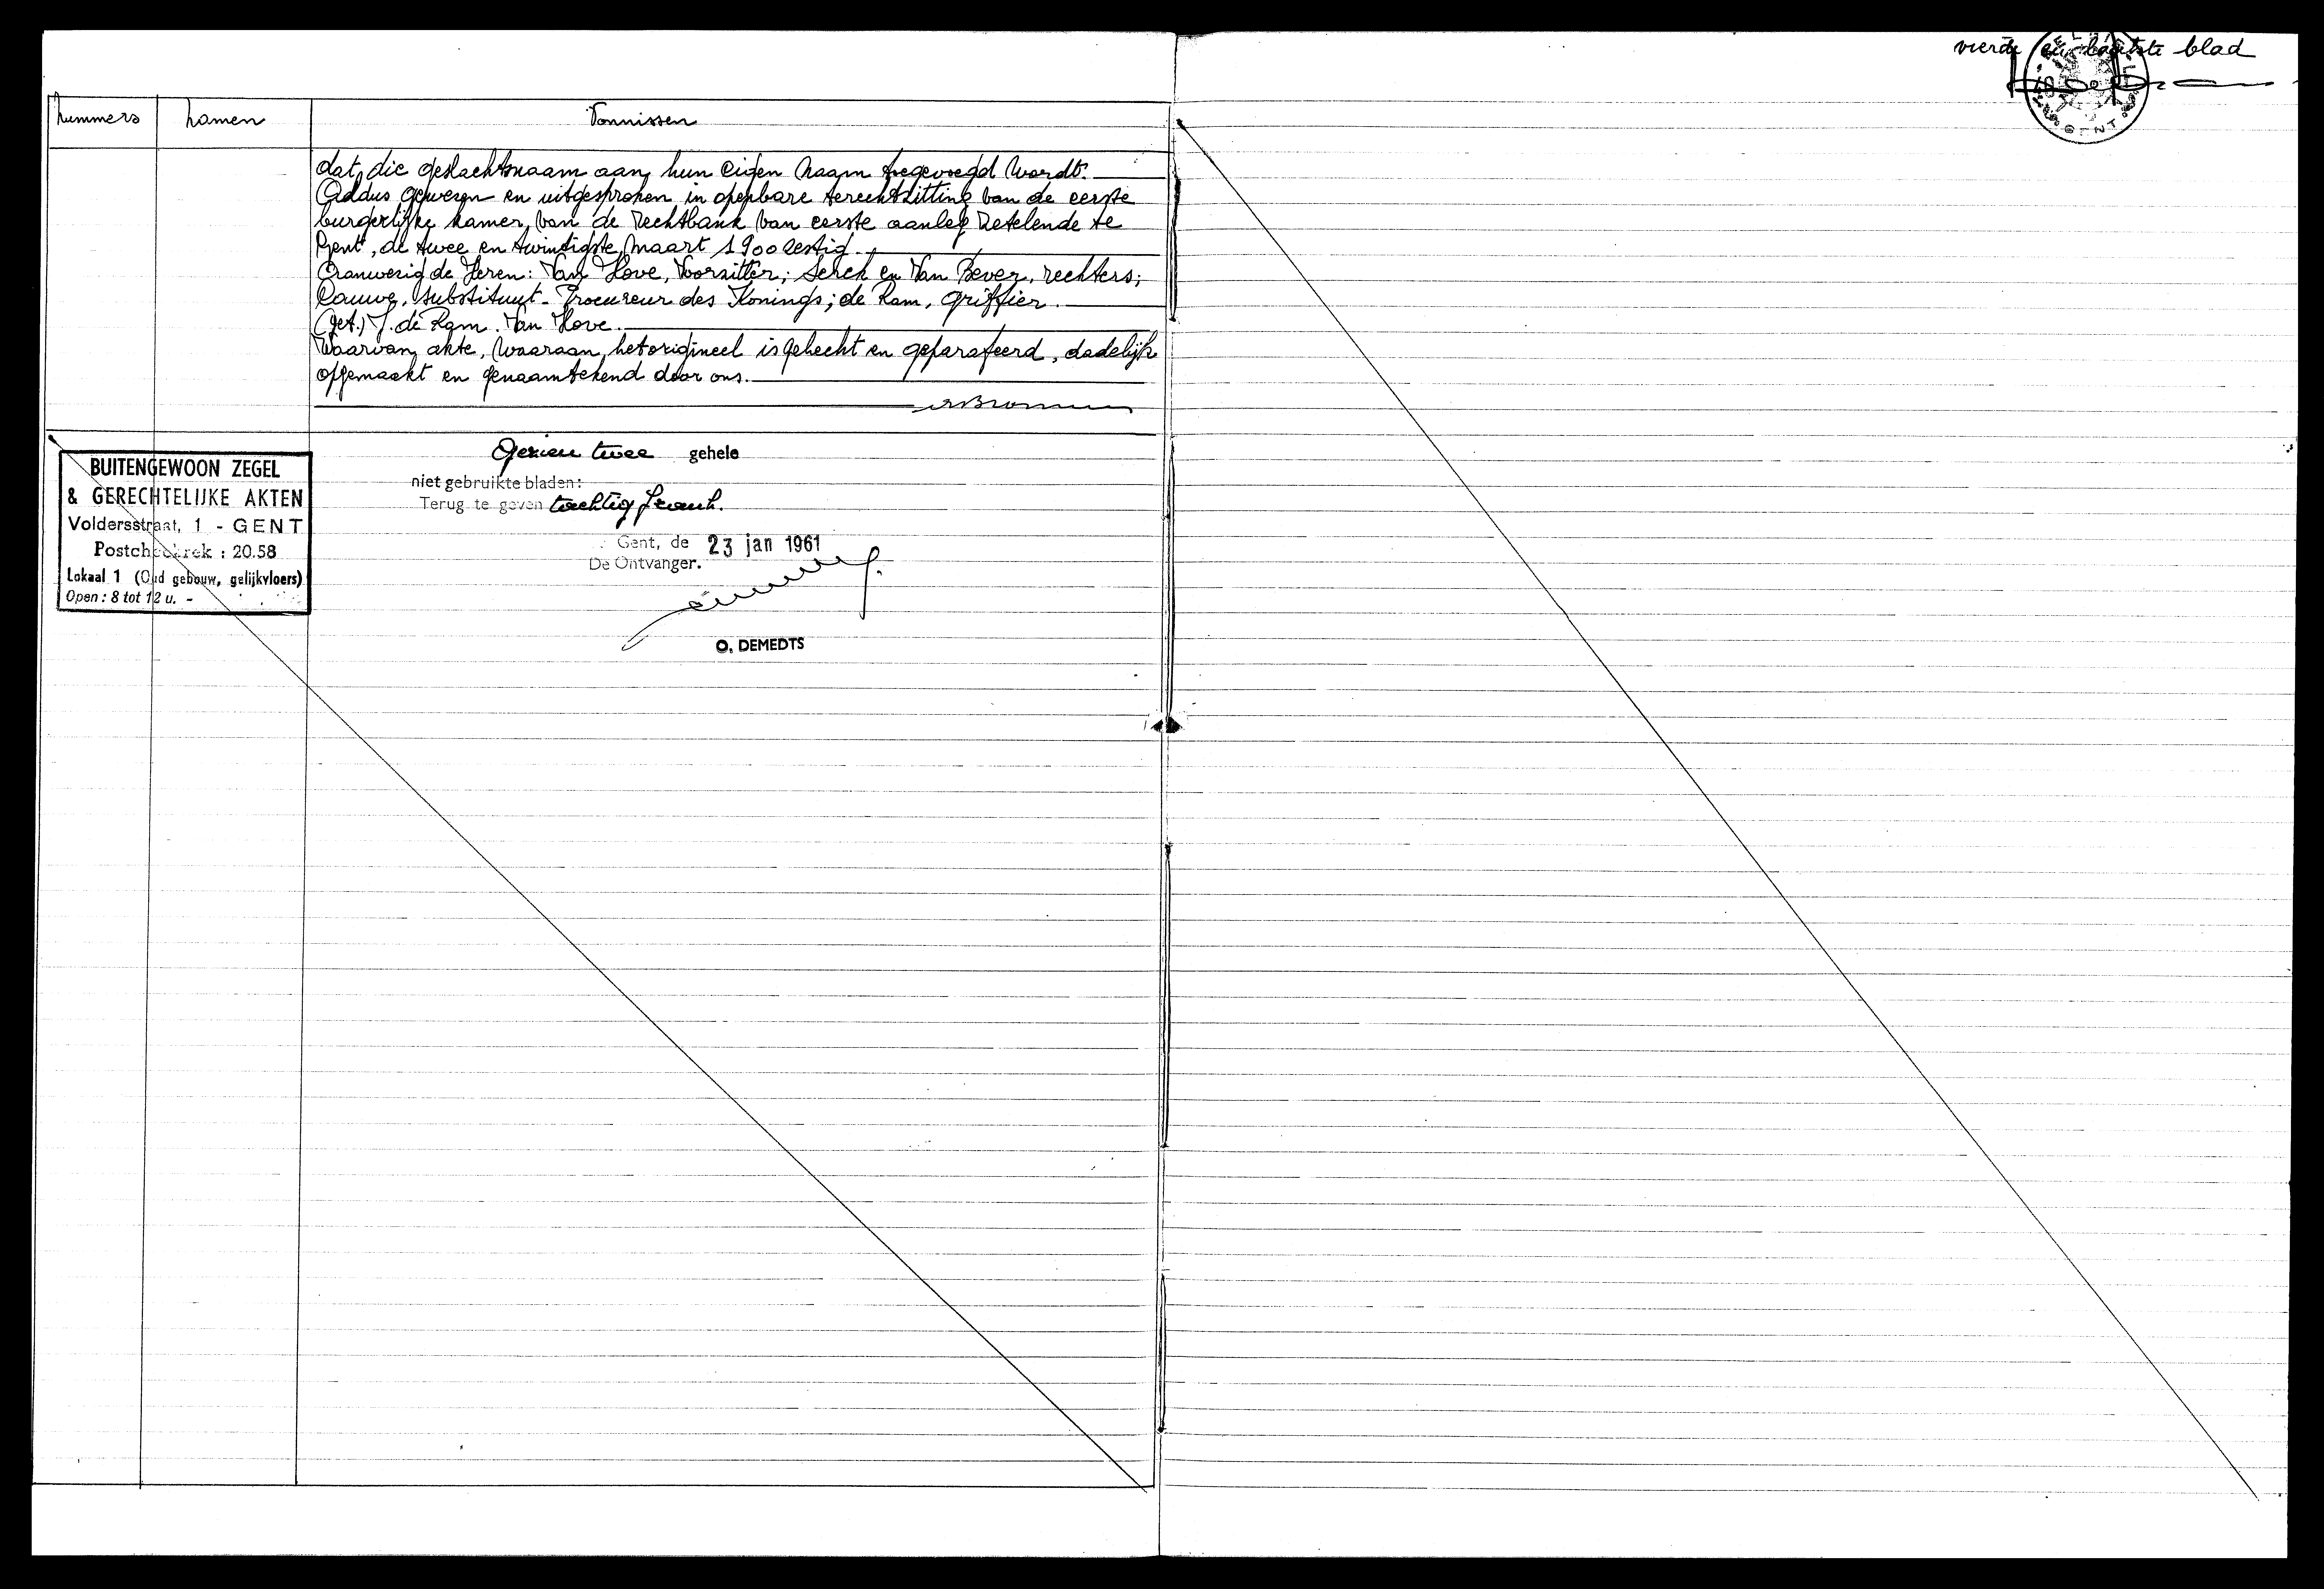 vierde en laatste blad
GENT
nummers namen Vonnissen
dat die geslachtsnaam aan hun eigen naam toegevoegd wordt.
Aldus gewezen en uitgesproken in openbare terechtzitting van de eerste
burgerlijke kamer van de rechtbank van eerste aanleg zetelende te
Gent, de twee en twintigste maart 1900 zestig.
Aanwezig de Heren: Van Hove, Voorzitter; Serck en Van Bever, rechters;
Cauwe, substituut-Procureur des Konings; de Ram, griffier.
(get.) J. de Ram. Van Hove.
Waarvan akte, waaraan het origineel is gehecht en geparafeerd, dadelijk
opgemaakt en genaamtekend door ons.
Gezien twee gehele
niet gebruikte bladen:
Terug te geven tachtig frank.
Gent, de 23 jan 1961
De Ontvanger.
O. DEMEDTS
BUITENGEWOON ZEGEL
& GERECHTELIJKE AKTEN
Voldersstraat, 1 - GENT
Postcheckrek : 20.58
Lokaal 1 (Oud gebouw, gelijkvloers)
Open : 8 tot 12 u. -